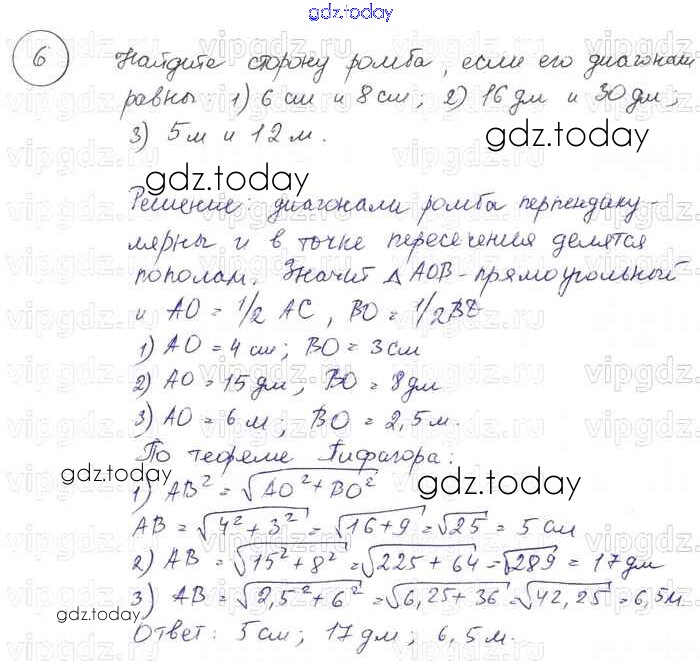 gdz.today
6 Найдите сторону ромба, если его диагонали
равны 1) 6 см и 8 см; 2) 16 дм и 30 дм;
3) 5 м и 12 м.
gdz.today
gdz.today
Решение: диагонали ромба перпендику-
лярны и в точке пересечения делятся
пополам. Значит △ AOB - прямоугольный
и AO = 1/2 AC, BO = 1/2
1) AO = 4 см; BO = 3 см
2) AO = 15 дм, BO = 8 дм
3) AO = 6 м; BO = 2,5 м.
По теореме Пифагора:
gdz.today
gdz.today
1) AB² = √(AO² + BO²)
AB = √(4² + 3²) = √(16 + 9) = √25 = 5 см
2) AB = √(15² + 8²) = √(225 + 64) = √289 = 17 дм
3) AB = √(2,5² + 6²) = √(6,25 + 36) = √42,25 = 6,5 м.
gdz.today
Ответ: 5 см; 17 дм; 6,5 м.